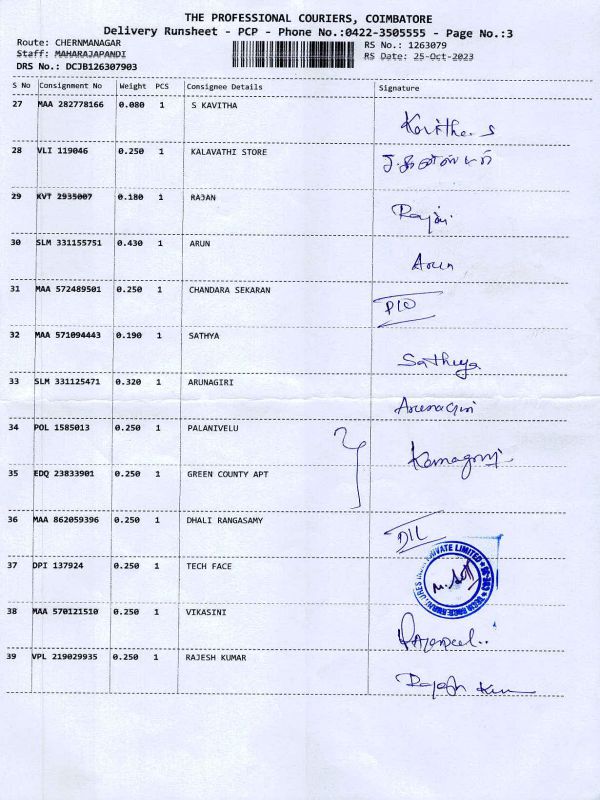 THE PROFESSIONAL COURIERS, COIMBATORE
Delivery Runsheet - PCP - Phone No.:0422-3505555 - Page No.:3
Route: CHERNMANAGAR RS No.: 1263079
Staff: MAHARAJAPANDI RS Date: 25-Oct-2023
DRS No.: DCJB126307903
S No Consignment No Weight PCS Consignee Details Signature
27 MAA 282778166 0.080 1 S KAVITHA Kavitha. S
28 VLI 119046 0.250 1 KALAVATHI STORE
29 KVT 2935007 0.180 1 RAJAN Rajan
30 SLM 331155751 0.430 1 ARUN Arun
31 MAA 572489501 0.250 1 CHANDARA SEKARAN
32 MAA 571094443 0.190 1 SATHYA Sathya
33 SLM 331125471 0.320 1 ARUNAGIRI Arunagiri
34 POL 1585013 0.250 1 PALANIVELU
35 EDQ 23833901 0.250 1 GREEN COUNTY APT
36 MAA 862059396 0.250 1 DHALI RANGASAMY D/L
37 DPI 137924 0.250 1 TECH FACE PRIVATE LIMITED
38 MAA 570121510 0.250 1 VIKASINI
39 VPL 219029935 0.250 1 RAJESH KUMAR Rajesh Kum